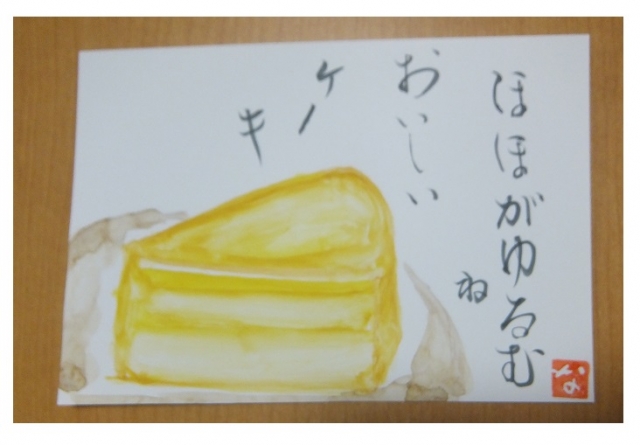 ほほがゆるむ
ね
おいしい
ケー
キ